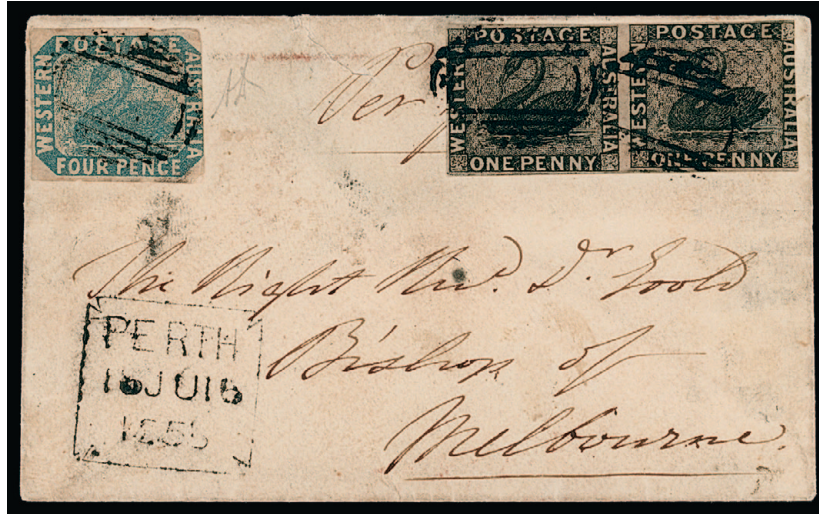 POSTAGE
WESTERN
AUSTRALIA
FOUR PENCE
POSTAGE
WESTERN
AUSTRALIA
ONE PENNY
POSTAGE
WESTERN
AUSTRALIA
ONE PENNY
Per
The Right Revd. Dr. Goold
Bishop of
Melbourne.
PERTH
1855